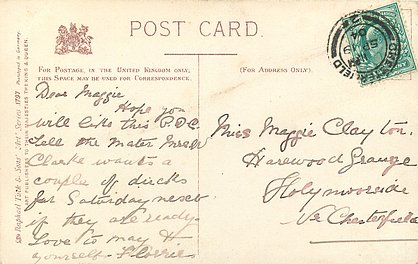 POST CARD.
FOR POSTAGE, IN THE UNITED KINGDOM ONLY,
THIS SPACE MAY BE USED FOR CORRESPONDENCE.
(FOR ADDRESS ONLY.)
Dear Maggie
Hope you
will like this P.P.C.
Tell the Mater
Clarke wants a
couple of ducks
for Saturday next
if they are ready.
Love to may H.
yourself. Florrie
Miss Maggie Clayton,
Harewood Grange
Holymoorside
Nr Chesterfield
CHESTERFIELD